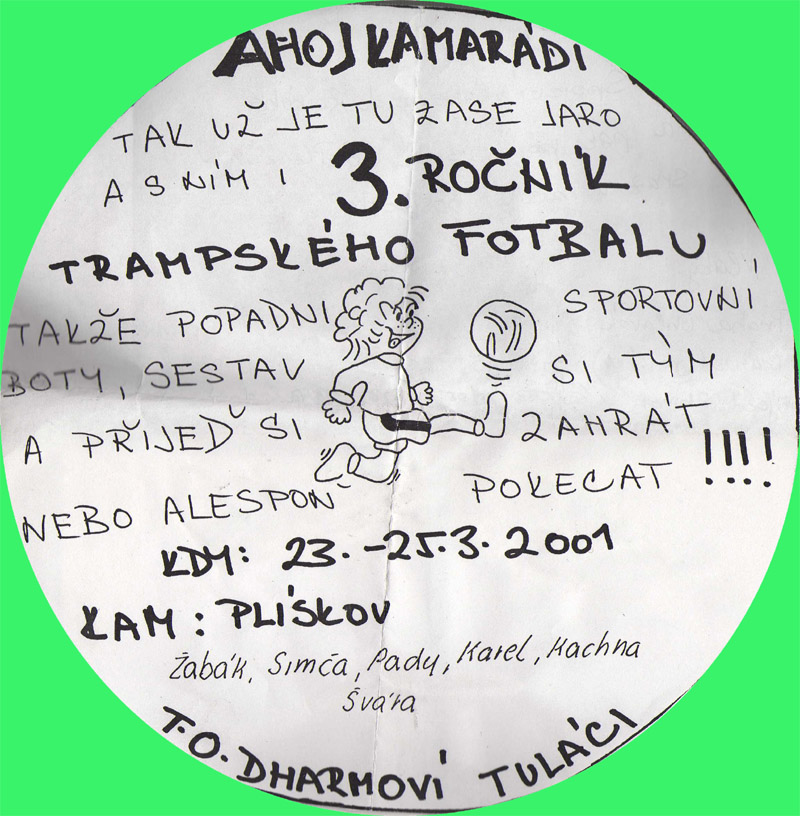 AHOJ KAMARÁDI
TAK UŽ JE TU ZASE JARO
A S NÍM I 3. ROČNÍK
TRAMPSKÉHO FOTBALU
TAKŽE POPADNI SPORTOVNÍ
BOTY, SESTAV SI TÝM
A PŘIJEĎ SI ZAHRÁT
NEBO ALESPOŇ POKECAT !!!!
KDY: 23. - 25.3. 2001
KAM: PLÍSKOV
Žabák, Simča, Pady, Karel, Kachna
Švára
T.O. DHARMOVÍ TULÁCI